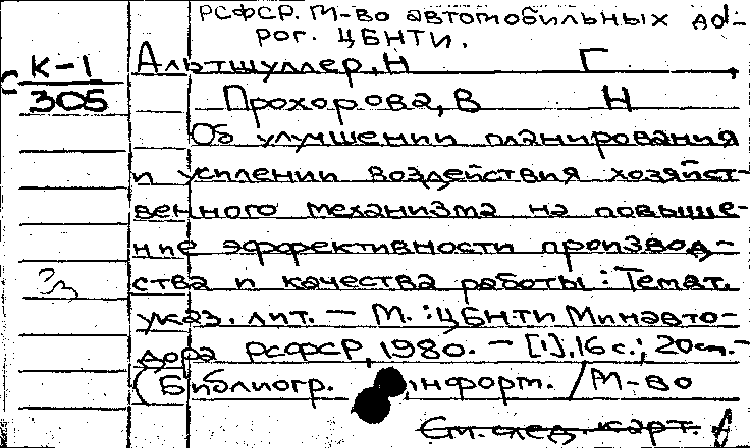 РСФСР. М-во автомобильных до-
рог. ЦБНТИ.
К-1 Альтшуллер, Н Г
С 305 Прохорова, В Н
Об улучшении планирования
и усилении воздействия хозяйст-
венного механизма на повыше-
ние эффективности производ-
ства и качества работы: Темат.
указ. лит. — М.: ЦБНТИ Минавто-
дора РСФСР, 1980. — [1], 16 с.; 20 см. —
(Библиогр. информ. / М-во
См. след. карт.